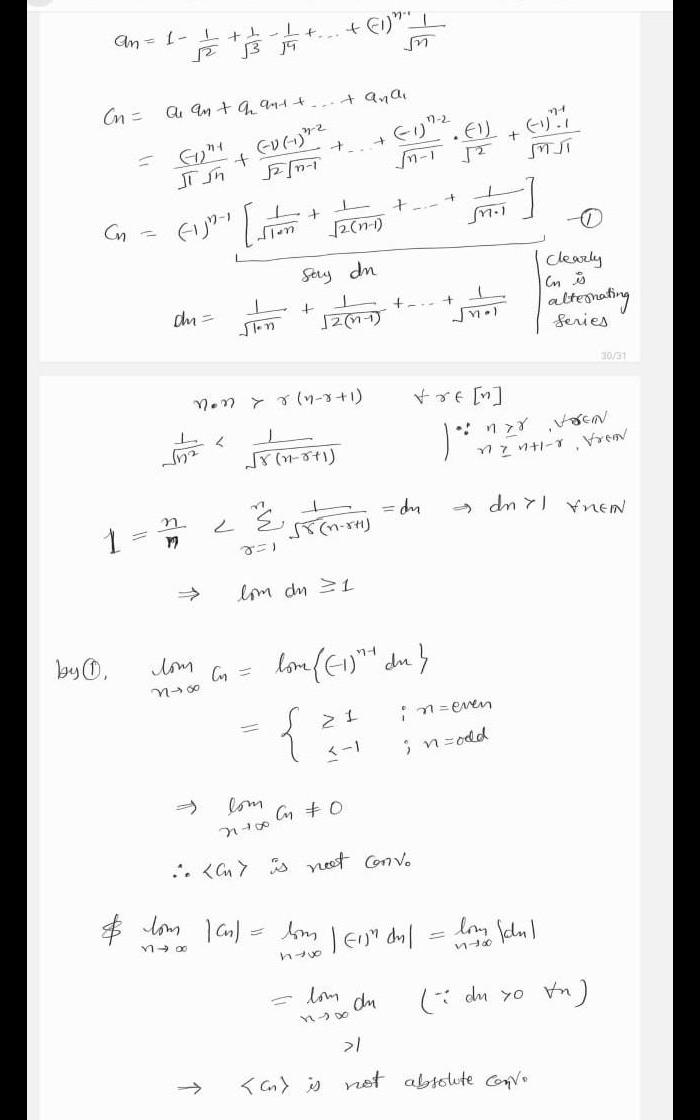 an = 1 - 1/√2 + 1/√3 - 1/√4 + ... + (-1)^{n-1} 1/√n
Cn = a₁ an + a₂ an-1 + ... + an a₁
= (-1)^{n-1}/√1 √n + (-1)(-1)^{n-2}/√2 √n-1 + ... + (-1)^{n-2}/√n-1 · (-1)/√2 + (-1)^{n-1}·1/√n √1
Cn = (-1)^{n-1} [ 1/√1·n + 1/√2(n-1) + ... + 1/√n·1 ] —①
say dn
dn = 1/√1·n + 1/√2(n-1) + ... + 1/√n·1
clearly
Cn is
alternating
series
30/31
n·n > r(n-r+1) ∀ r ∈ [n]
1/√n² < 1/√r(n-r+1)
∵ n ≥ r , ∀r∈N
n ≥ n+1-r , ∀r∈N
1 = n/n < Σ_{r=1}^{n} 1/√r(n-r+1) = dn ⇒ dn > 1 ∀n∈N
⇒ lim dn ≥ 1
by ①, lim_{n→∞} Cn = lim {(-1)^{n-1} dn}
= { ≥ 1 ; n = even
≤ -1 ; n = odd
⇒ lim_{n→∞} Cn ≠ 0
∴ <Cn> is not conv.
lim_{n→∞} |Cn| = lim_{n→∞} |(-1)^n dn| = lim_{n→∞} |dn|
= lim_{n→∞} dn (∵ dn > 0 ∀n)
>1
→ <Cn> is not absolute conv.